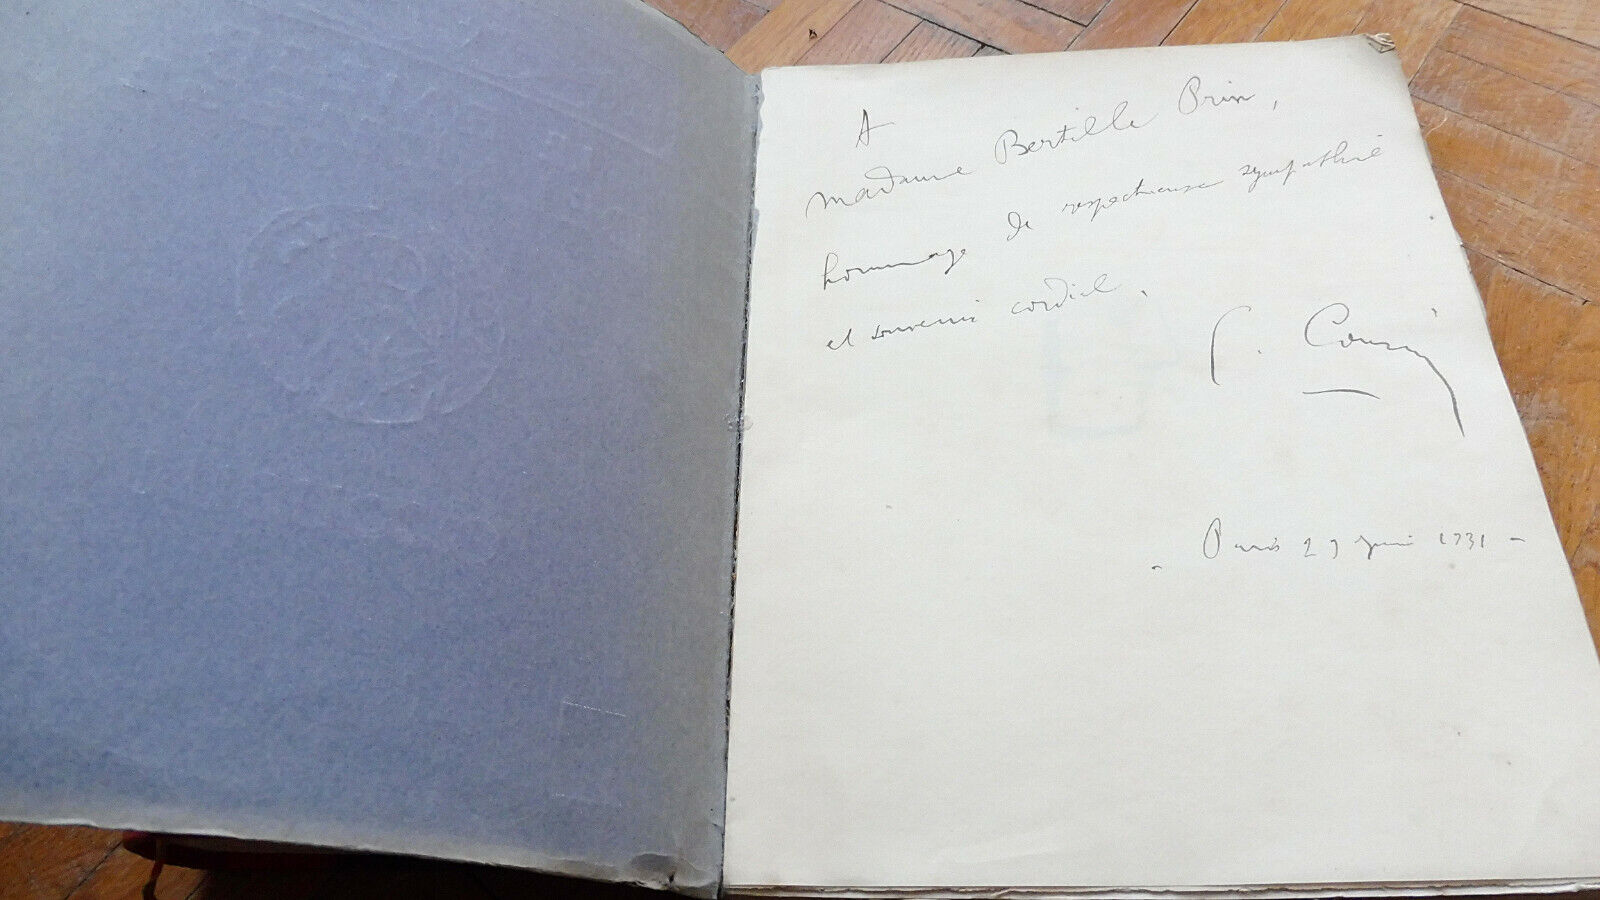 A
Madame Bertille Prin,
hommage de respectueuse sympathie
et souvenir cordial.
Paris 29 juin 1931 -